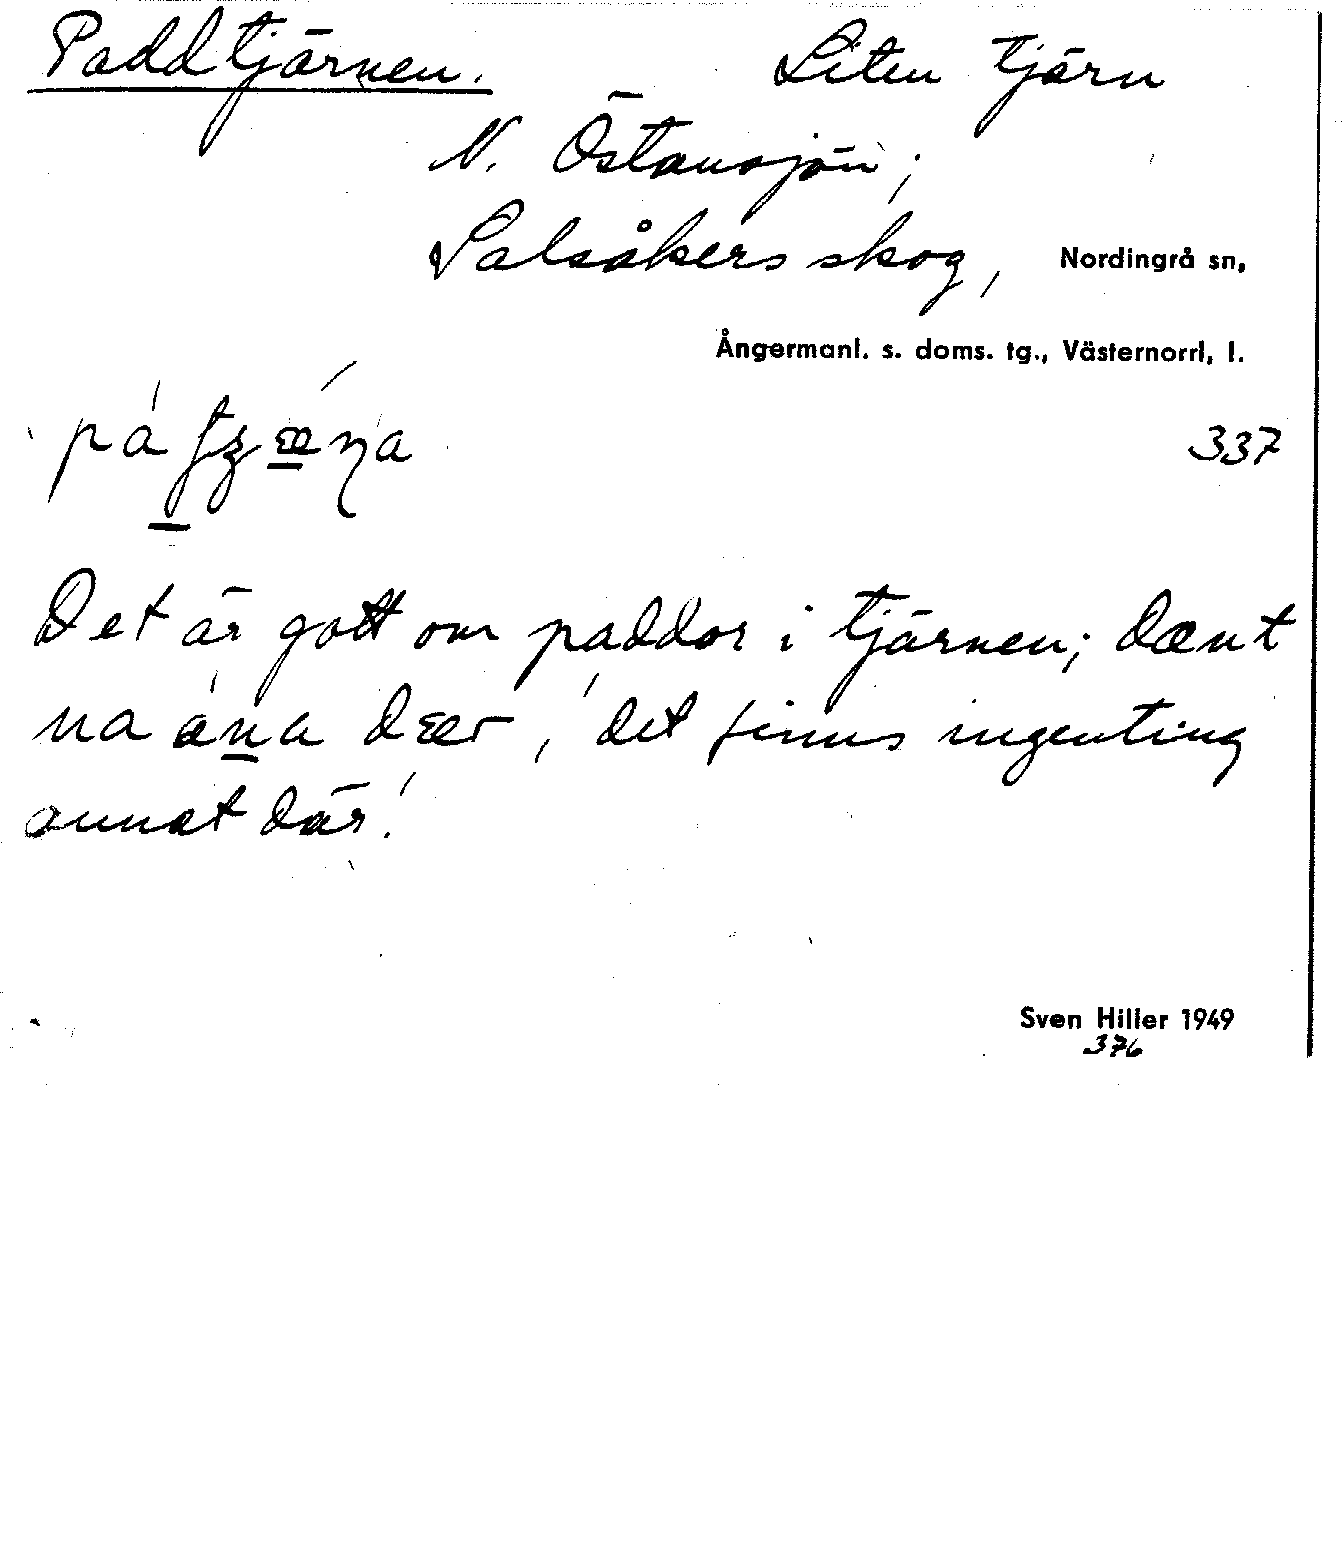 Paddtjärnen. Liten tjärn
N. Östansjön;
Salsåkersskog, Nordingrå sn,
Ångermanl. s. doms. tg., Västernorrl. l.
337
Det är gott om paddor i tjärnen; dænt
na ána dær, 'det finns ingenting
annat där!'
Sven Hiller 1949
376